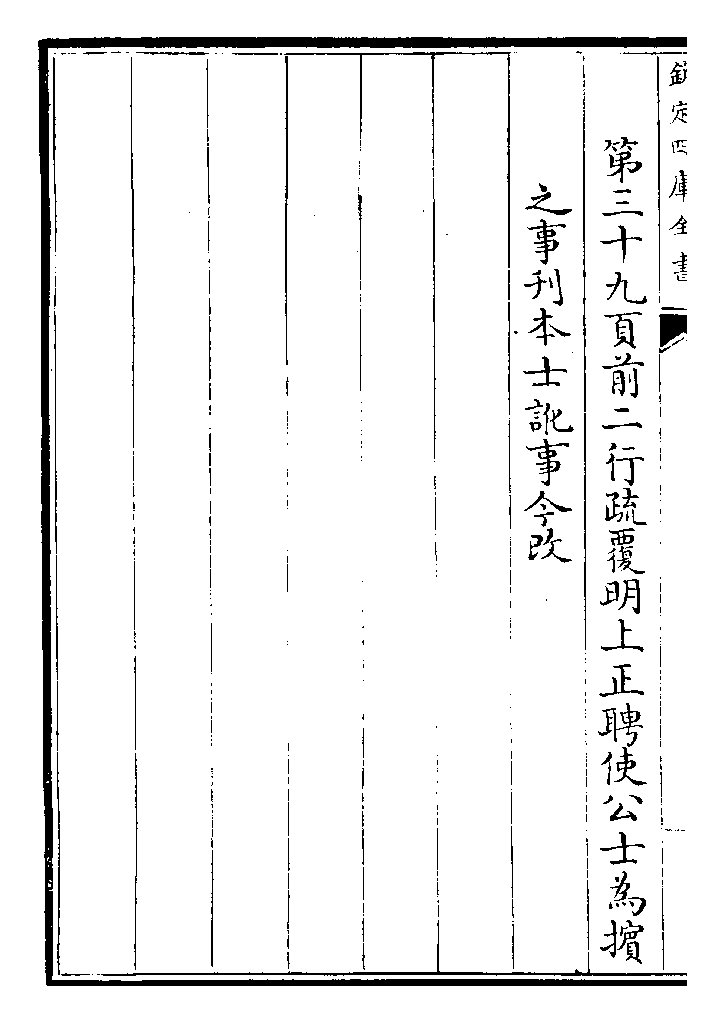 欽定四庫全書
第三十九頁前二行疏覆明上正聘使公士為擯
之事刋本士訛事今改